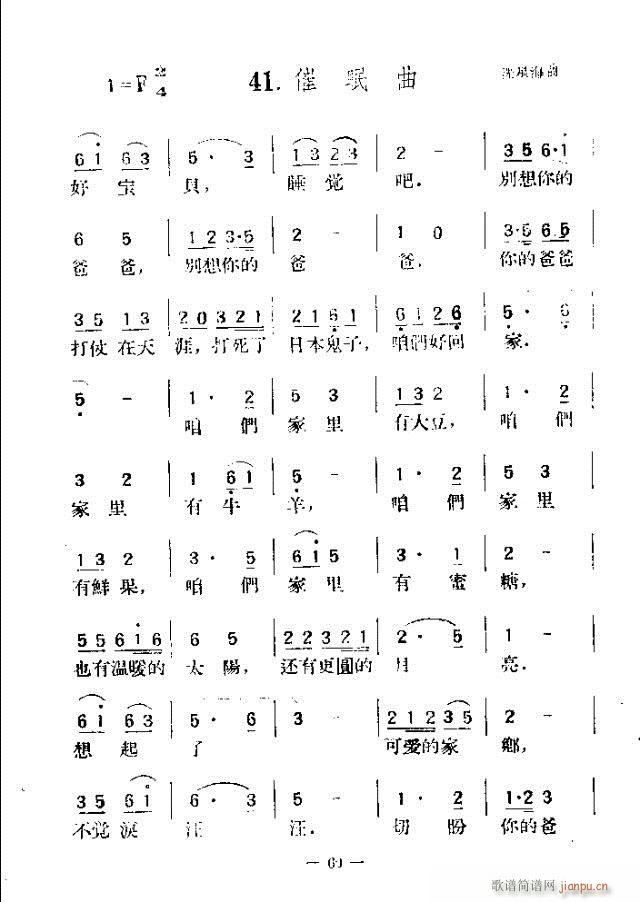 1=F 2/4 41. 催眠曲 冼星海曲
6 i 6 3 | 5 · 3 | 1 3 2 3 | 2 - | 3 5 6 · i
好宝貝，睡觉吧．別想你的
6 5 | 1 2 3 · 5 | 2 - | 1 0 | 3 · 5 6 5
爸爸，別想你的爸爸．你的爸爸
3 5 1 3 | 2 0 3 2 1 | 2 1 6 1 | 6 1 2 6 | 5 · 6
打仗在天涯，打死了日本鬼子，咱們好回家．
5 - | 1 · 2 | 5 3 | 1 3 2 | 1 · 2
咱們家里有大豆，咱們
3 2 | 1 6 1 | 5 - | 1 · 2 | 5 3
家里有牛羊，咱們家里
1 3 2 | 3 · 5 | 6 i 5 | 3 · 1 | 2 -
有鮮果，咱們家里有蜜糖，
5 5 6 i 6 | 6 5 | 2 2 3 2 1 | 2 · 5 | 1 -
也有温暖的太陽，还有更圓的月亮．
6 i 6 3 | 5 · 6 | 3 - | 2 1 2 3 5 | 2 -
想起了可愛的家鄉，
3 5 6 i | 6 · 3 | 2 - | 1 · 2 | 1 · 2 3
不觉淚汪汪．切盼你的爸
— 60 —
歌谱简谱网
jianpu.cn